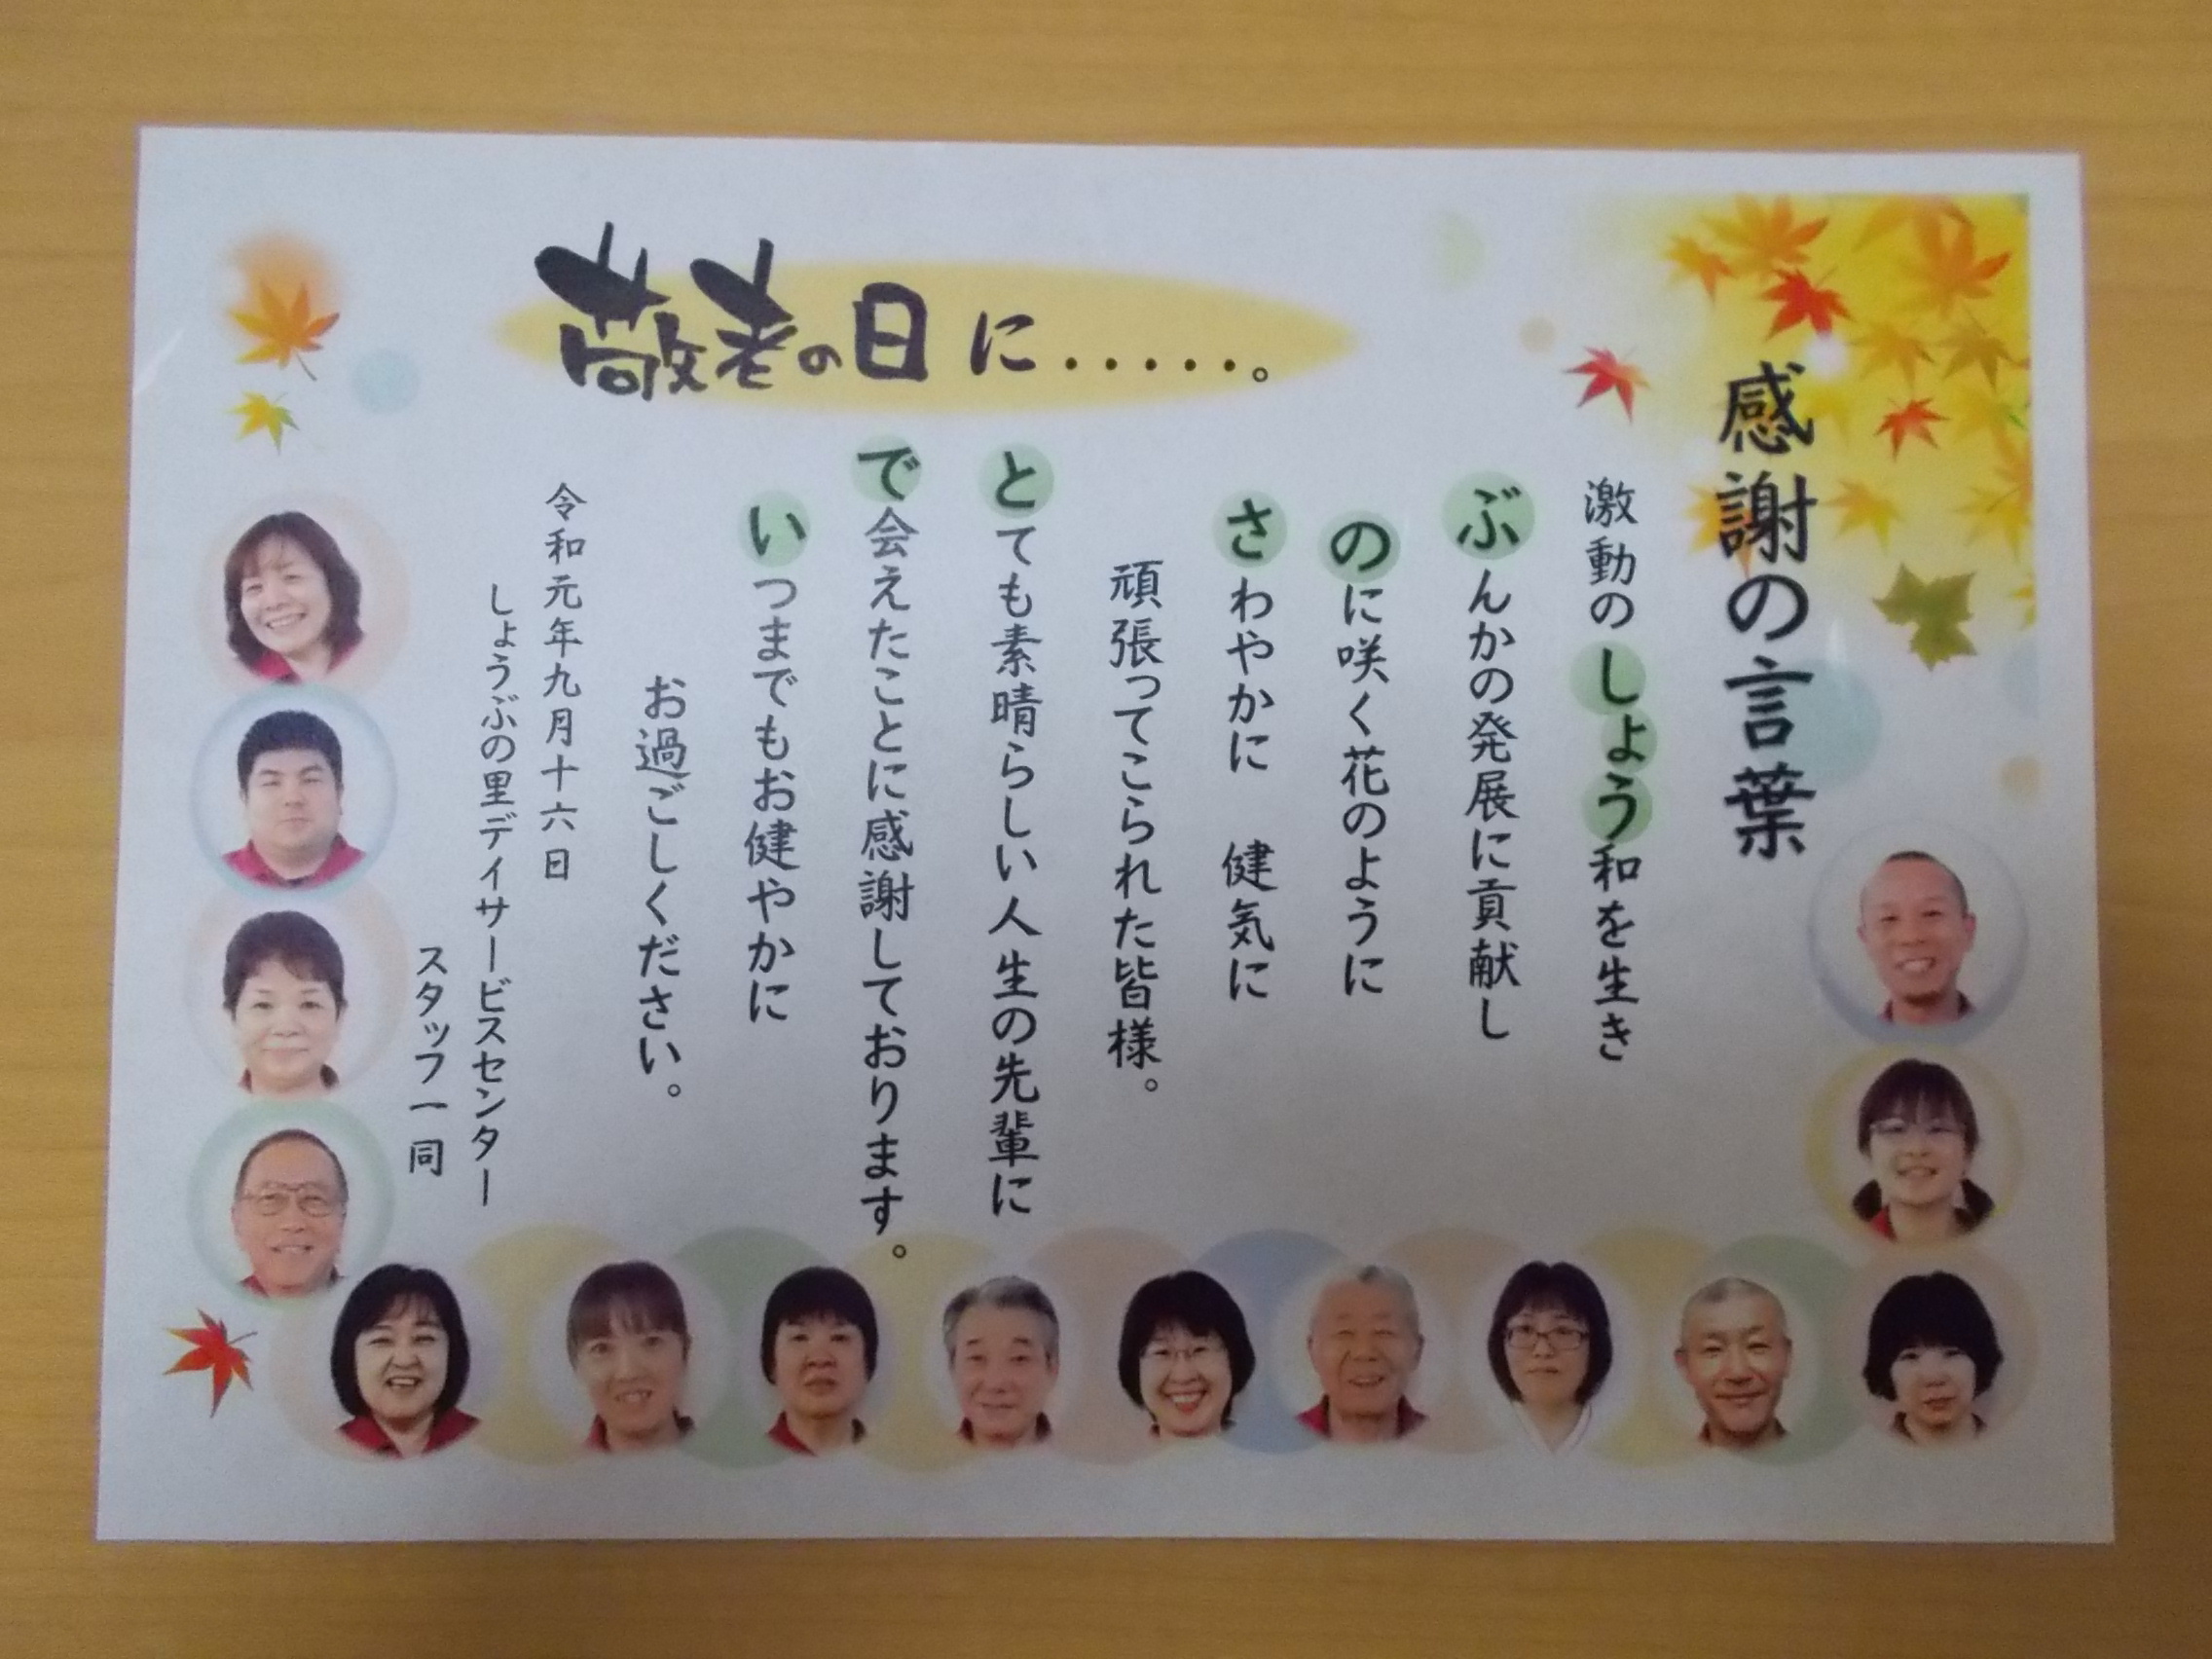 敬老の日に.....。
感謝の言葉
激動のしょう和を生き
ぶんかの発展に貢献し
のに咲く花のように
さわやかに　健気に
頑張ってこられた皆様。
とても素晴らしい人生の先輩に
で会えたことに感謝しております。
いつまでもお健やかに
お過ごしください。
令和元年九月十六日
しょうぶの里デイサービスセンター
スタッフ一同